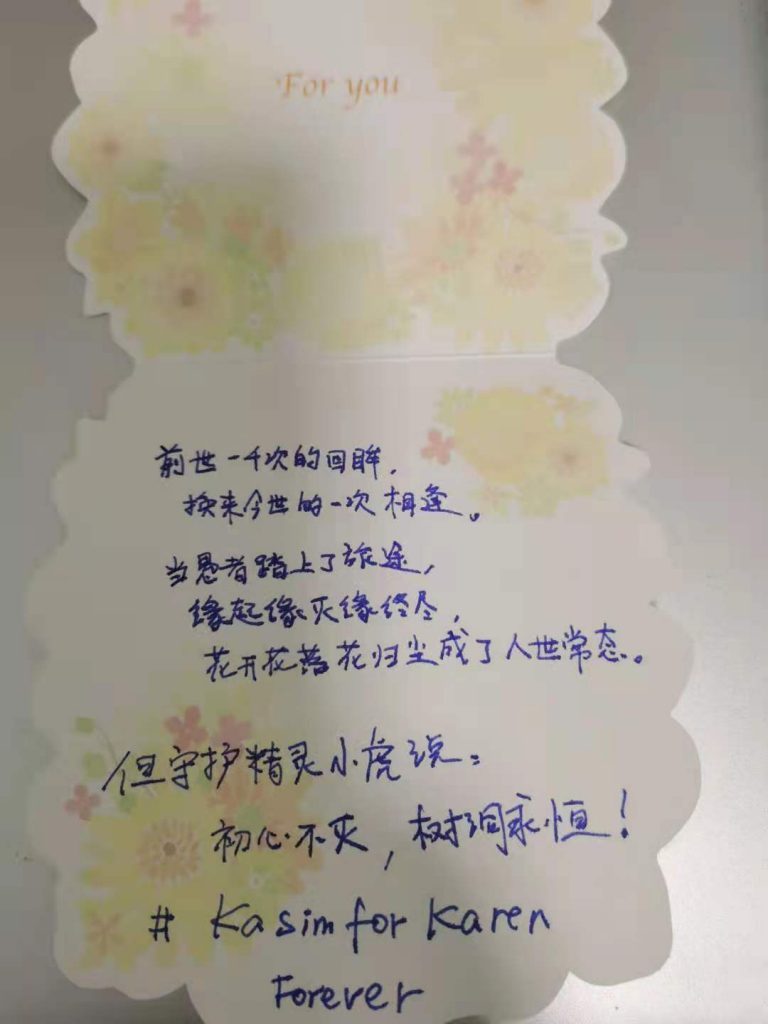 For you
前世一千次的回眸，
换来今世的一次相逢。
当愚者踏上了旅途，
缘起缘灭缘终尽，
花开花落花归尘成了人世常态。
但守护精灵小虎说：
初心不灭，树洞永恒！
# Kasim for Karen
Forever